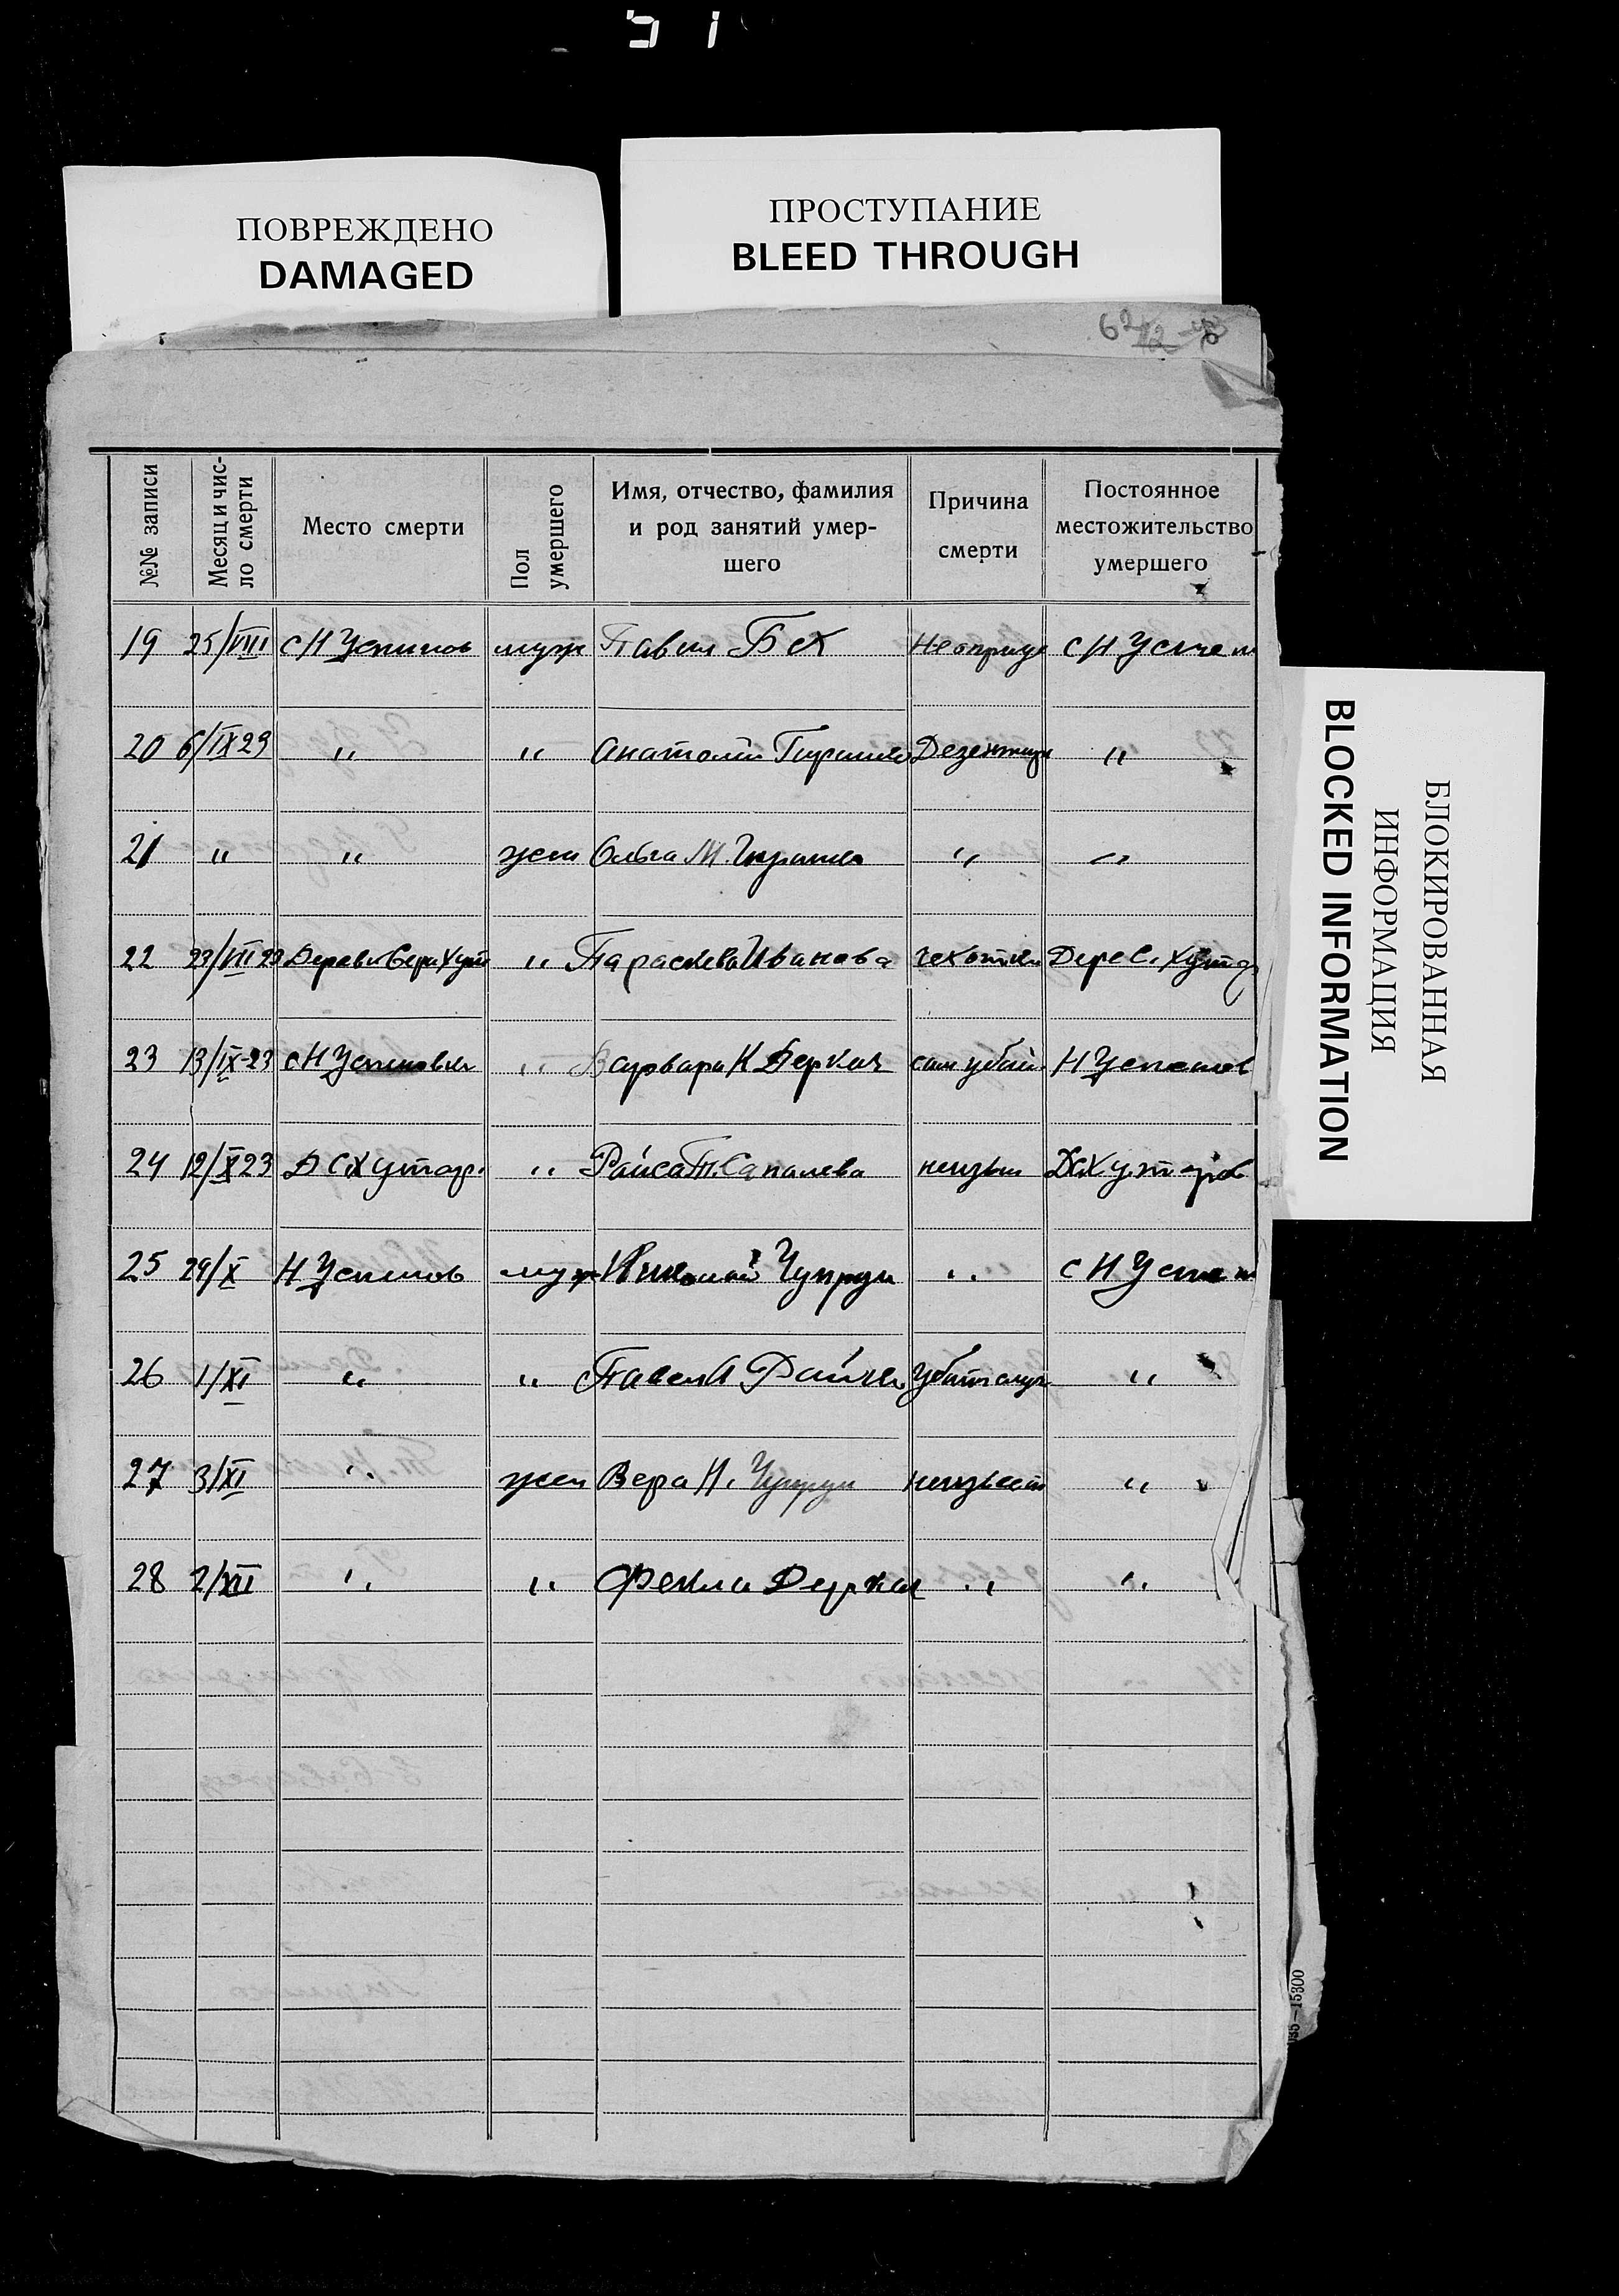 51
ПОВРЕЖДЕНО
DAMAGED
ПРОСТУПАНИЕ
BLEED THROUGH
БЛОКИРОВАННАЯ
ИНФОРМАЦИЯ
BLOCKED INFORMATION
№№ записи
Месяц и чис-
ло смерти
Место смерти
Пол
умершего
Имя, отчество, фамилия
и род занятий умер-
шего
Причина
смерти
Постоянное
местожительство
умершего
19 25/VIII с Н Успинов муж Павел Бех с Н
20 6/IX 23 " " Анатолий "
21 " " жен Ольга М. " "
22 23/VII 23 " Параскева Иванова Дере С. Хутор
23 13/IX-23 с Н " Варвара К Деркач сам убий Н
24 12/X 23 Д С. Хутор. " Раиса неизвш Д С. Хуторов
25 29/X Н Успинов муж Николай Чупрун " с Н
26 1/XI " " Павел А "
27 3/XI " жен Вера Н. Чупрун неизвест "
28 2/XII " " Фекла Деркач " "